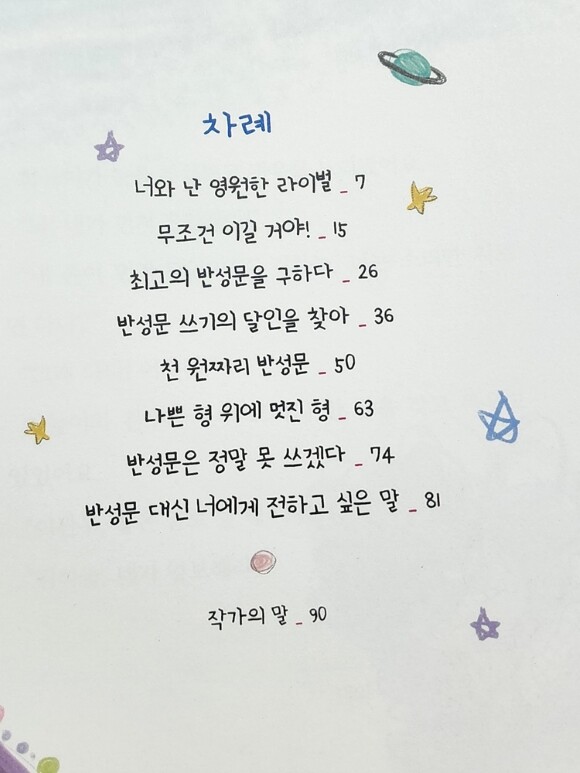 차례
너와 난 영원한 라이벌 _ 7
무조건 이길 거야! _ 15
최고의 반성문을 구하다 _ 26
반성문 쓰기의 달인을 찾아 _ 36
천 원짜리 반성문 _ 50
나쁜 형 위에 멋진 형 _ 63
반성문은 정말 못 쓰겠다 _ 74
반성문 대신 너에게 전하고 싶은 말 _ 81
작가의 말 _ 90